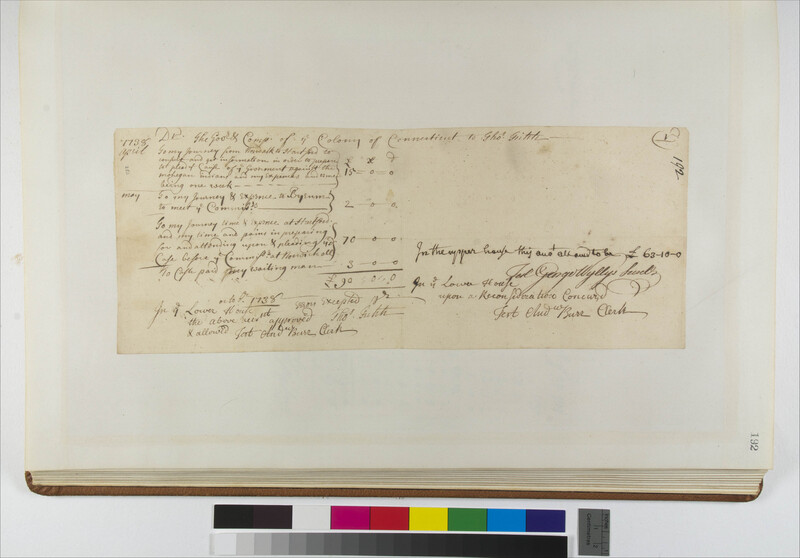 192
1
Dr. The Govr. & Comp. of ye Colony of Connecticut to Thos. Fitch
1738
April
To my Journey from Norwalk to Hartford to
confer and get information in order to prepare
to plead ye Cause of ye Government against the
mohegan Indians and my expences and time
being one week
£ s d
15 = 0 = 0
may
To my Journey & expence to Byram
to meet ye Comissrs.
2 - 0 - 0
To my Journey time & expence at Hartford
and my time and pains in preparing
for and attending upon & pleading ye
Case before ye Commissrs. at Norwich
70 - 0 - 0
To Cash paid my waiting man
3 - 0 - 0
£ 90 - 0 - 0
1738 Errors excepted pr.
Thos. Fitch
In ye Lower House
the above acct. approved
& allowed Test Andw. Burr Clerk
In the upper house this acct. allowed to be £ 63-10-0
Test George Wyllys Secrety
In ye Lower House
upon a Reconsideration Concur'd
Test Andw. Burr Clerk
192